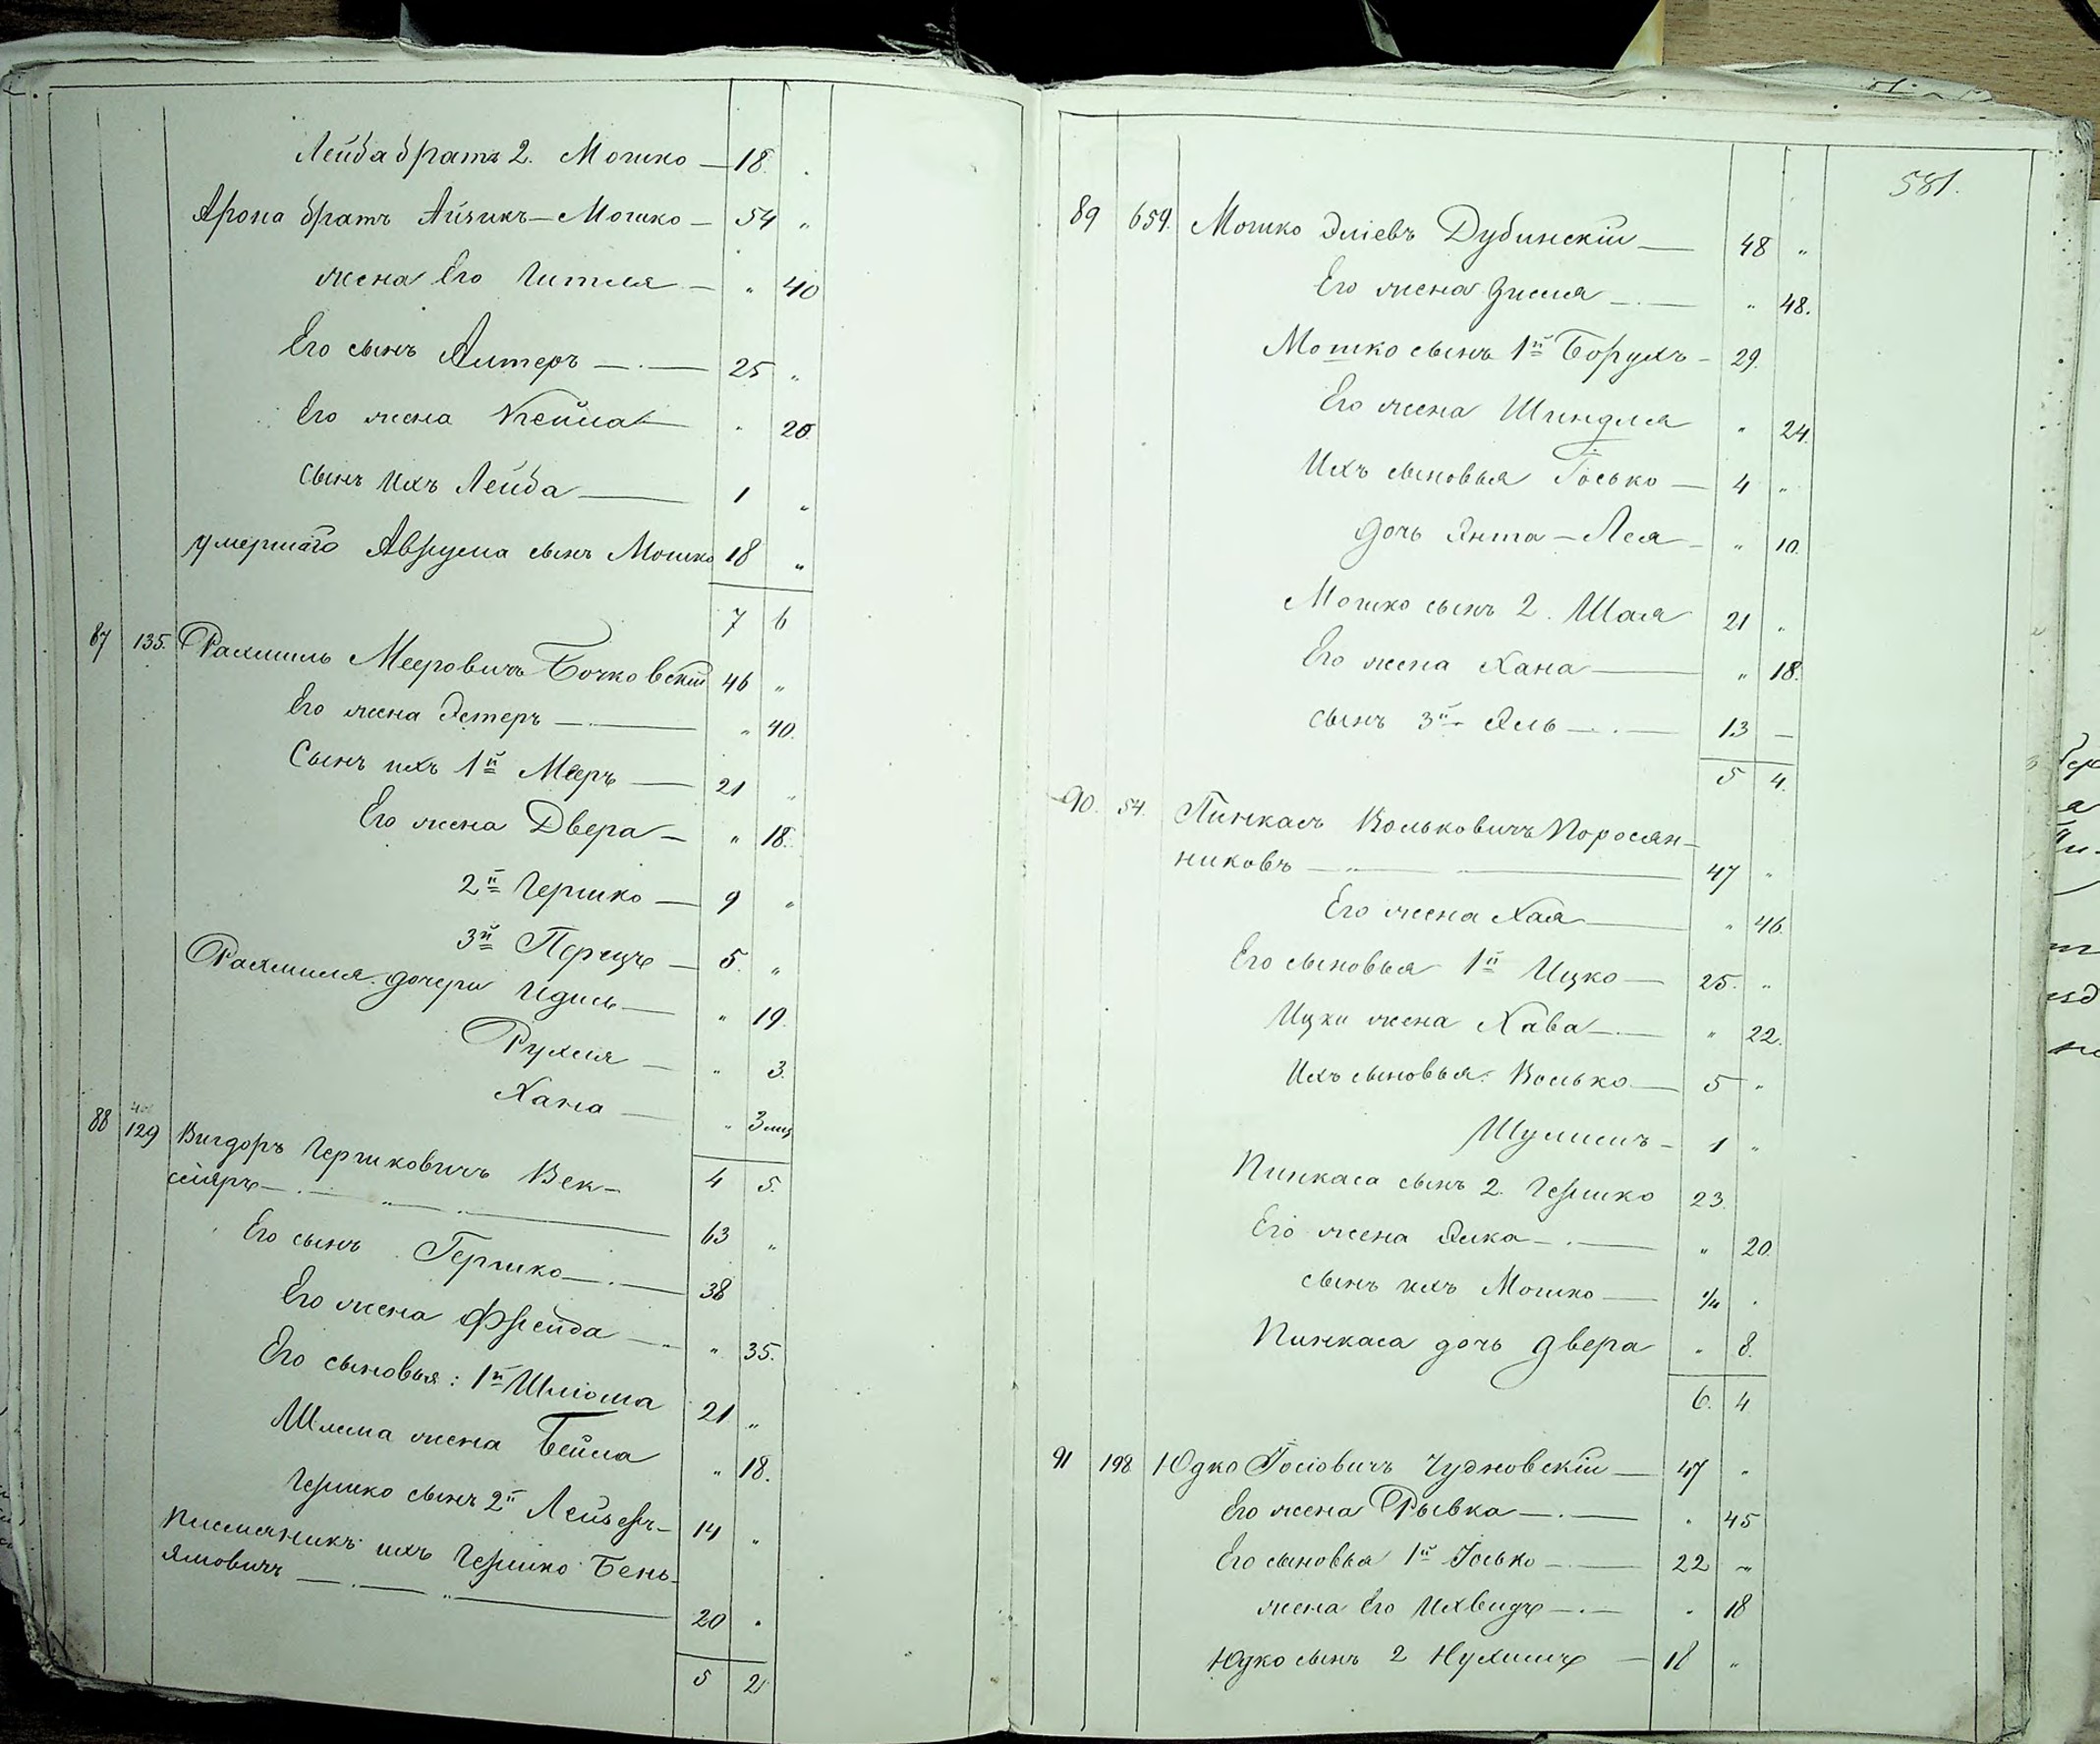 Лейба братъ 2. Мошко — 18 .
Арона братъ Айзикъ — Мошко — 54 „
жена Его Гитля — „ 40
Его сынъ Алтеръ — 25 „
Его жена Кейла — „ 20.
сынъ ихъ Лейба — 1 „
умершаго Аврума сынъ Мошко 18 „
7 6
87 135. Рахмиль Мееровичъ Бочковскій 46 „
Его жена Эстеръ — „ 40.
Сынъ ихъ 1й Мееръ — 21 „
Его жена Двера — „ 18.
2й Гершко — 9 „
3й Перецъ — 5. „
Рахмиля дочери Идись — „ 19.
Рухля — „ 3.
Хана — „ 3 мц
4 5.
88 129 Вигдоръ Гершковичъ Век-
сляръ — 63 „
Его сынъ Гершко — 38
Его жена Фрейда — „ 35.
Его сыновья: 1й Шліома 21 „
Шлема жена Бейла „ 18.
Гершко сынъ 2й Лейзеръ — 14 „
племянникъ ихъ Гершко Бень-
ямовичъ — 20 „
5 2
581.
89 659. Мошко Эліевъ Дубинскій — 48 „
Его жена Зисля — „ 48.
Мошко сынъ 1й Борухъ — 29.
Его жена Шиндля „ 24.
Ихъ сыновья Іосько — 4 „
дочь Янта — Лея — „ 10.
Мошко сынъ 2. Шая 21 „
Его жена Хана — „ 18.
сынъ 3й Эль — 13 —
5 4.
90. 54. Пинкасъ Вольковичъ Поросян-
никовъ — 47 „
Его жена Хая — „ 46.
Его сыновья 1й Ицко — 25. „
Ицки жена Хава — „ 22.
Ихъ сыновья: Волько — 5 „
Шулимъ — 1 „
Пинкаса сынъ 2. Гершко 23.
Его жена — „ 20.
сынъ ихъ Мошко — 1/4 .
Пинкаса дочь Двера „ 8.
6. 4
91 198 Юдко Іосіовичъ Чудновскій — 47 „
Его жена Рывка — „ 45
Его сыновья 1й Іосько — 22 „
жена Его Ихвидъ — „ 18
Юдко сынъ 2 Нухимъ — 18 „